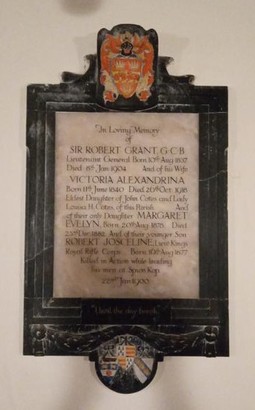 In Loving Memory
of
SIR ROBERT GRANT, G.C.B.
Lieutenant General Born 10th Aug 1837
Died 8th Jan 1904 And of his Wife
VICTORIA ALEXANDRINA
Born 11th June 1840 Died 20th Oct 1918
Eldest Daughter of John Cotes and Lady
Louisa H. Cotes, of this Parish And
of their only Daughter MARGARET
EVELYN, Born 20th Aug 1878 Died
23rd Dec 1882 And of their younger Son
ROBERT JOSCELINE, Lieut Kings
Royal Rifle Corps Born 10th Aug 1877
Killed in Action while leading
his men at Spion Kop
Jan 1900
"Until the day break"